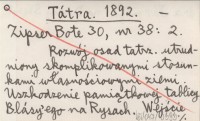 Tátra. 1892. —
Zipser Bote 30, nr 38: 2.
Rozwój osad tatrz. utrud-
niony skomplikowanymi stosun-
kami własnościowymi ziemi.
Uszkodzenie pamiątkowej tablicy
Blásy'ego na Rysach. Wejście